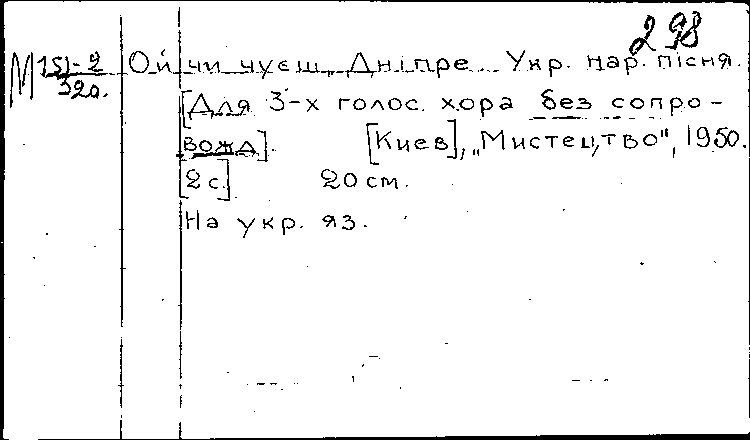 298
М 151-2 Ой чи чуєш, Дніпре. Укр. нар. пісня.
320.
[Для 3-х голос. хора без сопро-
вожд]. [Киев], „Мистецтво", 1950.
[2 с.] 20 см.
На укр. яз.